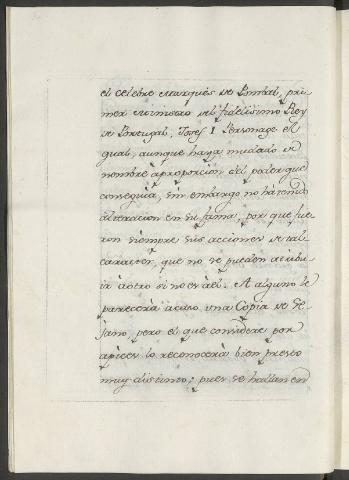 el celebre Marquès de Pombal, pri-
mer Ministro del fidelisimo Rey
de Portugal, Josef I Personage el
qual, aunque haya mudado de
nombre à proporcion del poder que
conseguia, sin embargo no hà tenido
alteracion en su fama, por que fue
ron siempre sus acciones de tal
caracter, que no se pueden atribu-
ir à otro si no es à el. A alguno le
parecerà acaso una Copia de Se-
jano, pero el que considere por
apices lo reconocerà bien presto
muy distinto; pues se hallan en